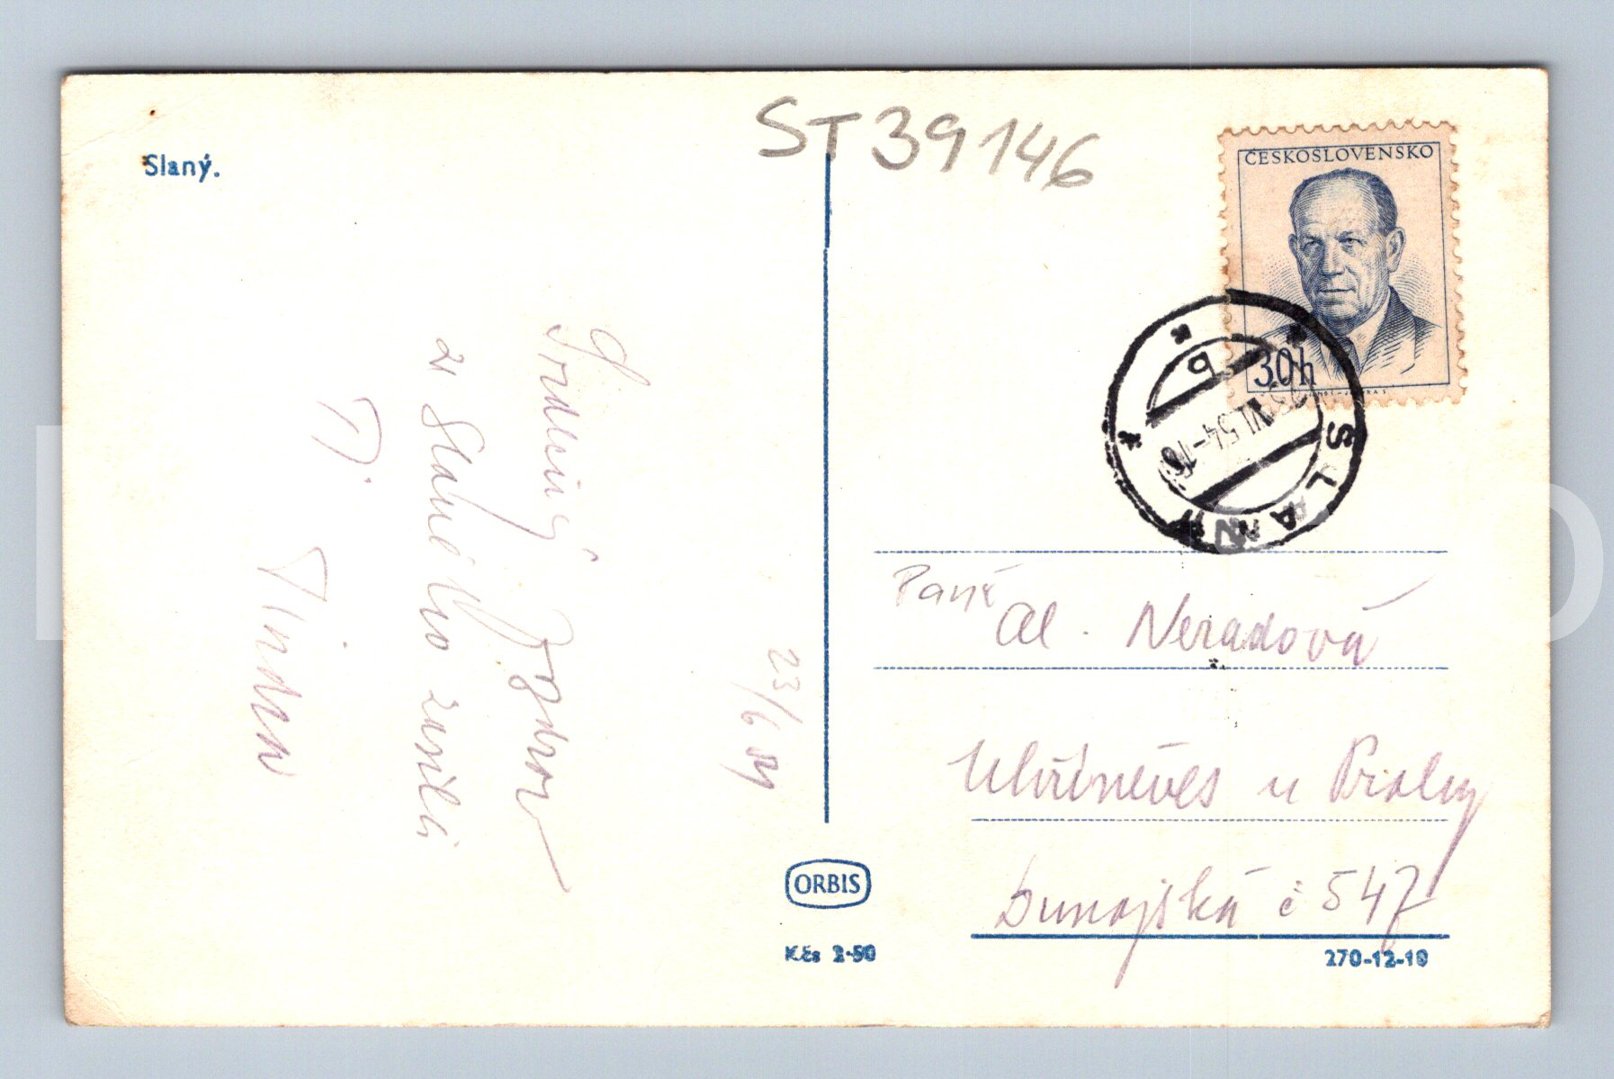 Slaný.
ST39146
ČESKOSLOVENSKO
30h
SLANÝ
b
VI.54-16
Srdečný pozdrav
ze Slaného zasílá
23/6 54
Paní
Al. Neradová
Uhříněves u Prahy
Dunajská č 547
ORBIS
Kčs 2·50
270-12-10